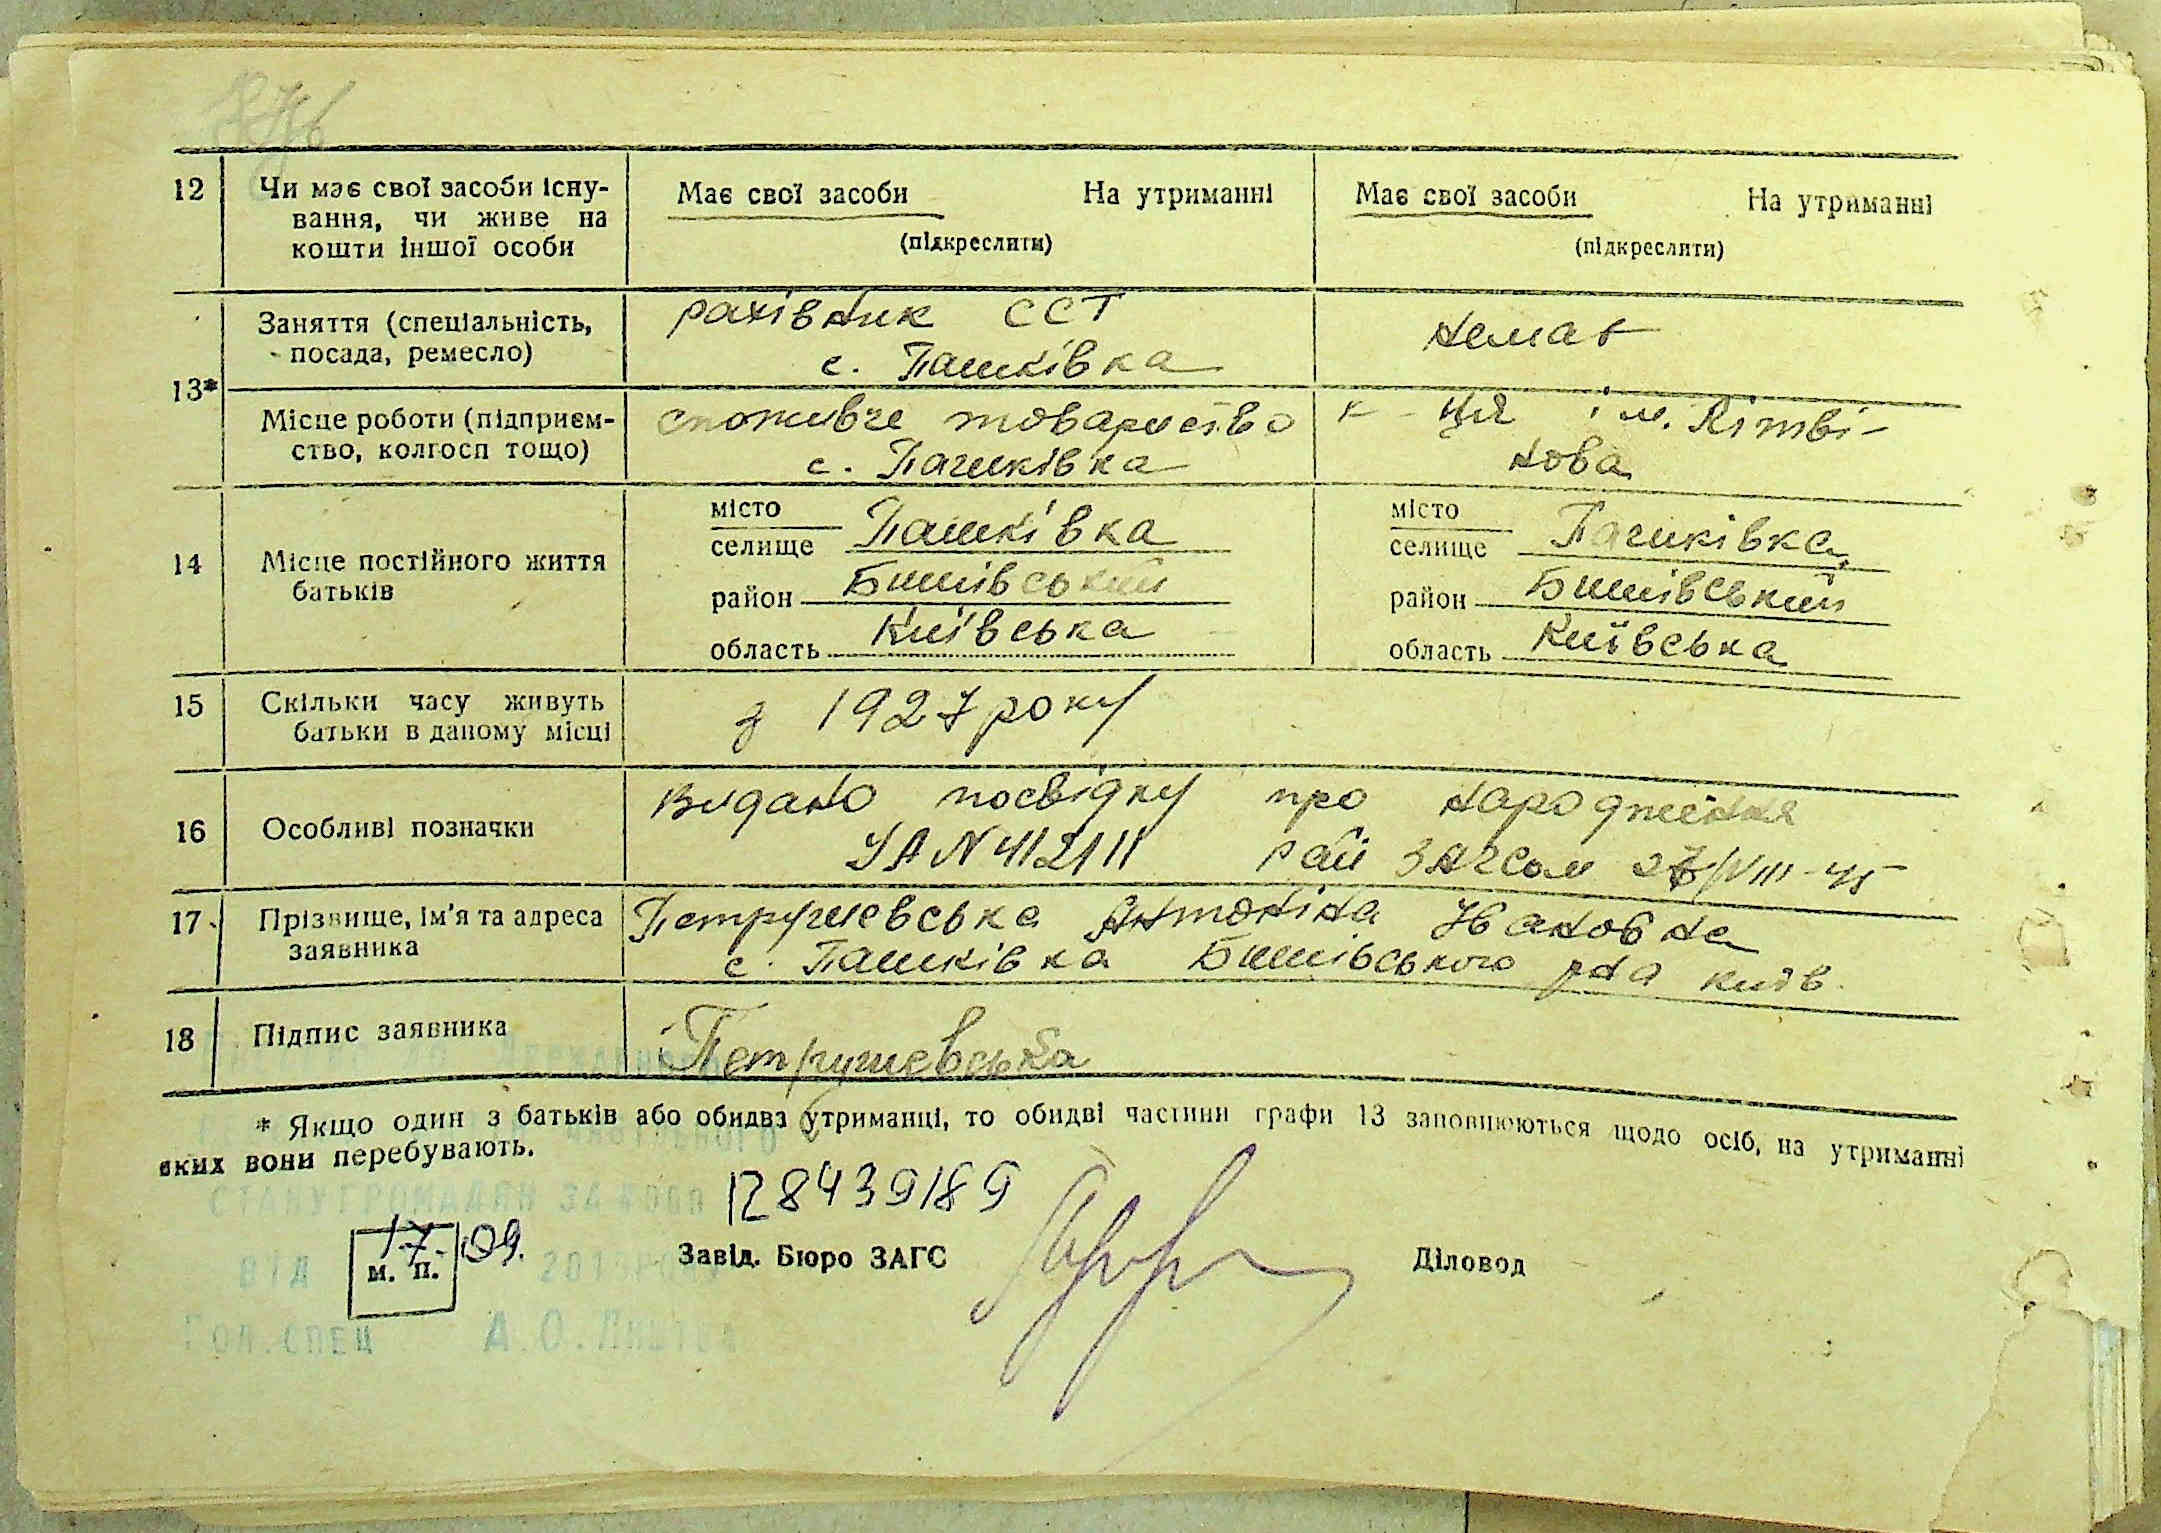 12 Чи має свої засоби існу-
вання, чи живе на
кошти іншої особи
Має свої засоби На утриманні
(підкреслити)
Має свої засоби На утриманні
(підкреслити)
13*
Заняття (спеціальність,
посада, ремесло)
рахівник ССТ
с. Пашківка
немає
Місце роботи (підприєм-
ство, колгосп тощо)
споживче товариство
с. Пашківка
к-ця ім. Літві-
нова
14 Місце постійного життя
батьків
місто
селище Пашківка
район Бишівський
область Київська
місто
селище Пашківка
район Бишівський
область Київська
15 Скільки часу живуть
батьки в даному місці
з 1927 року
16 Особливі позначки
Видано посвідку про народження
УА N 412111 рай ЗАГСом /VIII-45
17 Прізвище, ім'я та адреса
заявника
Петрушевська Антоніна Івановна
с. Пашківка Бишівського р-на Київ.
18 Підпис заявника
Петрушевська
* Якщо один з батьків або обидва утриманці, то обидві частини графи 13 заповнюються щодо осіб, на утриманні
яких вони перебувають.
128439189
СТАНУ ГРОМАДЯН ЗА
17. 09.
м. п.
Завід. Бюро ЗАГС
Діловод
ВІД
Гол. спец А.О.